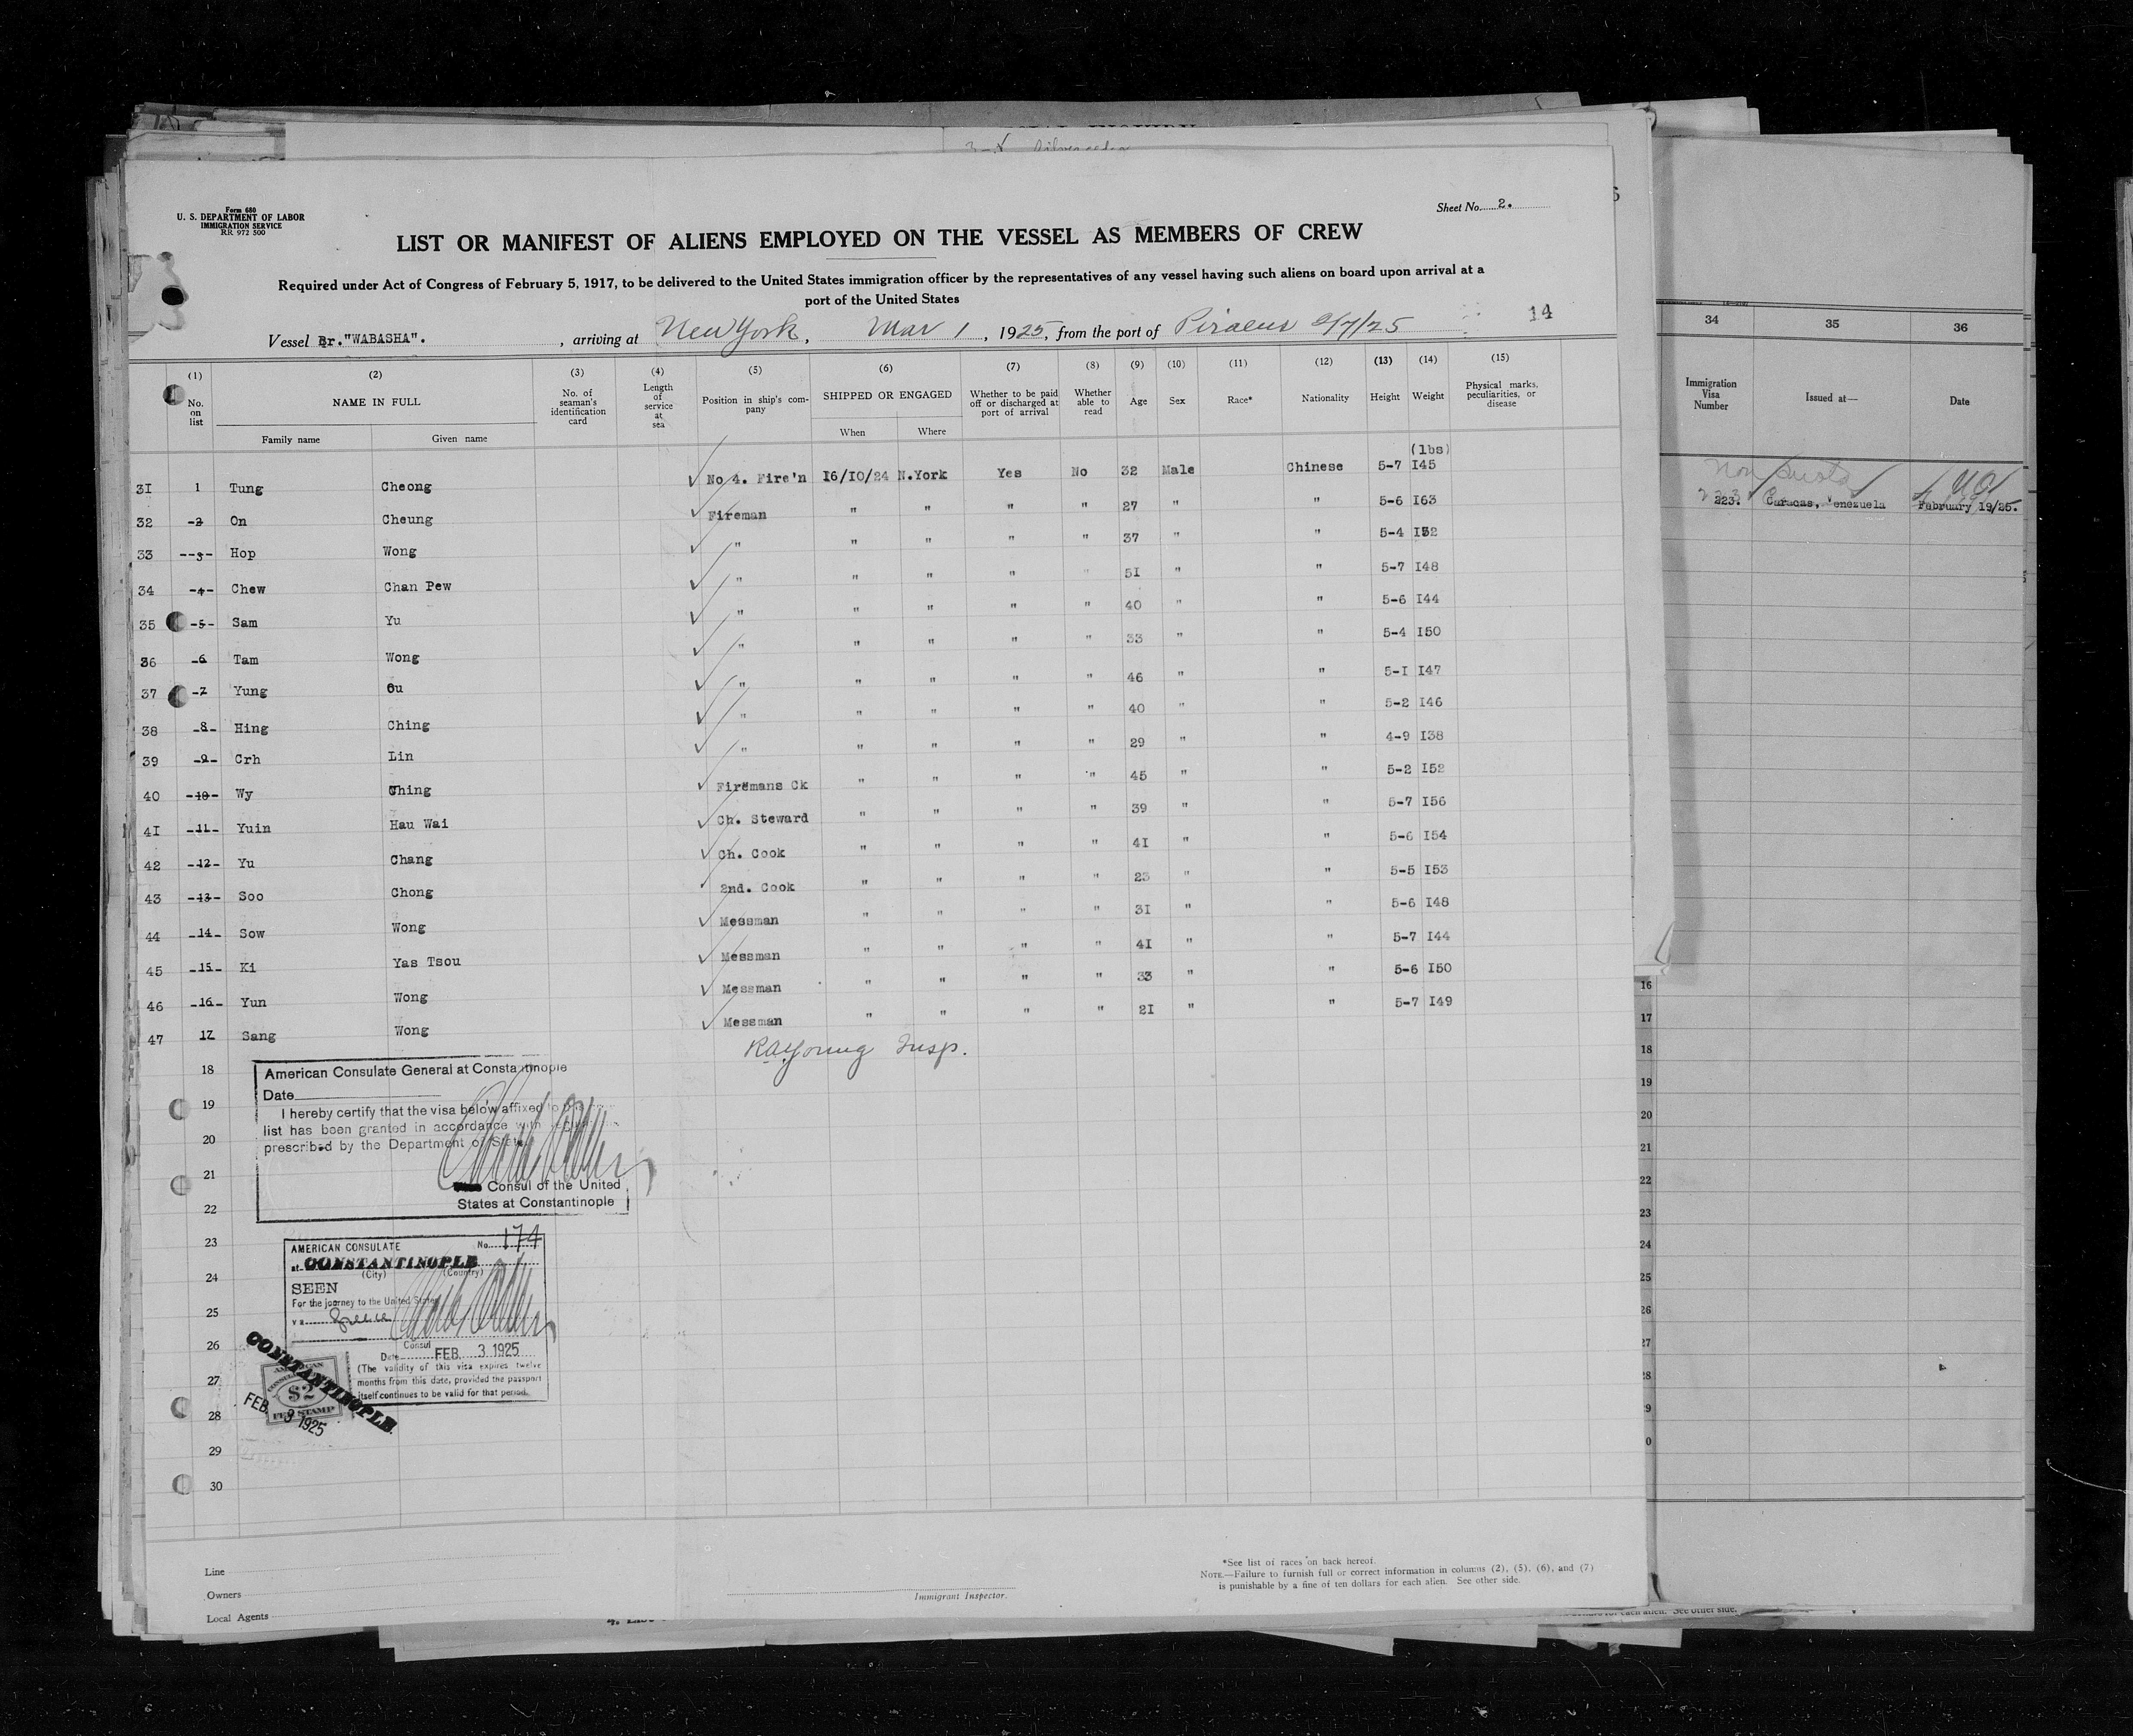 Form 680
U. S. DEPARTMENT OF LABOR
IMMIGRATION SERVICE
RR 972 500
Sheet No. 2.
LIST OR MANIFEST OF ALIENS EMPLOYED ON THE VESSEL AS MEMBERS OF CREW
Required under Act of Congress of February 5, 1917, to be delivered to the United States immigration officer by the representatives of any vessel having such aliens on board upon arrival at a
port of the United States
Vessel Br."WABASHA"., arriving at New York, Mar 1, 1925, from the port of Piraeus 2/7/25 14
(1) (2) (3) (4) (5) (6) (7) (8) (9) (10) (11) (12) (13) (14) (15)
No. on list NAME IN FULL No. of seaman's identification card Length of service at sea Position in ship's company SHIPPED OR ENGAGED Whether to be paid off or discharged at port of arrival Whether able to read Age Sex Race* Nationality Height Weight Physical marks, peculiarities, or disease
Family name Given name When Where
(lbs)
31 1 Tung Cheong No 4. Fire'n 16/10/24 N.York Yes No 32 Male Chinese 5-7 145
32 -2 On Cheung Fireman " " " " 27 " " 5-6 163
33 --3- Hop Wong " " " " " 37 " " 5-4 152
34 -4- Chew Chan Pew " " " " " 51 " " 5-7 148
35 -5- Sam Yu " " " " " 40 " " 5-6 144
36 -6 Tam Wong " " " " " 33 " " 5-4 150
37 -7 Yung Ou " " " " " 46 " " 5-1 147
38 -8- Hing Ching " " " " " 40 " " 5-2 146
39 -9- Crh Lin " " " " " 29 " " 4-9 138
40 -10- Wy Ching Firemans Ck " " " " 45 " " 5-2 152
41 -11- Yuin Hau Wai Ch. Steward " " " " 39 " " 5-7 156
42 -12- Yu Chang Ch. Cook " " " " 41 " " 5-6 154
43 -13- Soo Chong 2nd. Cook " " " " 23 " " 5-5 153
44 -14- Sow Wong Messman " " " " 31 " " 5-6 148
45 -15- Ki Yas Tsou Messman " " " " 41 " " 5-7 144
46 -16- Yun Wong Messman " " " " 33 " " 5-6 150
47 17 Sang Wong Messman " " " " 21 " " 5-7 149
RA Young Insp.
18
19
20
21
22
23
24
25
26
27
28
29
30
American Consulate General at Constantinople
Date
I hereby certify that the visa below affixed to
list has been granted in accordance with
prescribed by the Department of State
Consul of the United
States at Constantinople
AMERICAN CONSULATE No. 174
at CONSTANTINOPLE
(City) (Country)
SEEN
For the journey to the United States
via Greece
Consul
Date FEB 3 1925
(The validity of this visa expires twelve
months from this date, provided the passport
itself continues to be valid for that period.
CONSTANTINOPLE.
AMERICAN
$2
FEE STAMP
FEB 3 1925
Line
Owners
Local Agents
Immigrant Inspector.
*See list of races on back hereof.
NOTE.—Failure to furnish full or correct information in columns (2), (5), (6), and (7)
is punishable by a fine of ten dollars for each alien. See other side.
34 35 36
Immigration Visa Number Issued at— Date
223. Caracas, Venezuela February 19/25.
16
17
18
19
20
21
22
23
24
25
26
27
28
9
0
See other side.